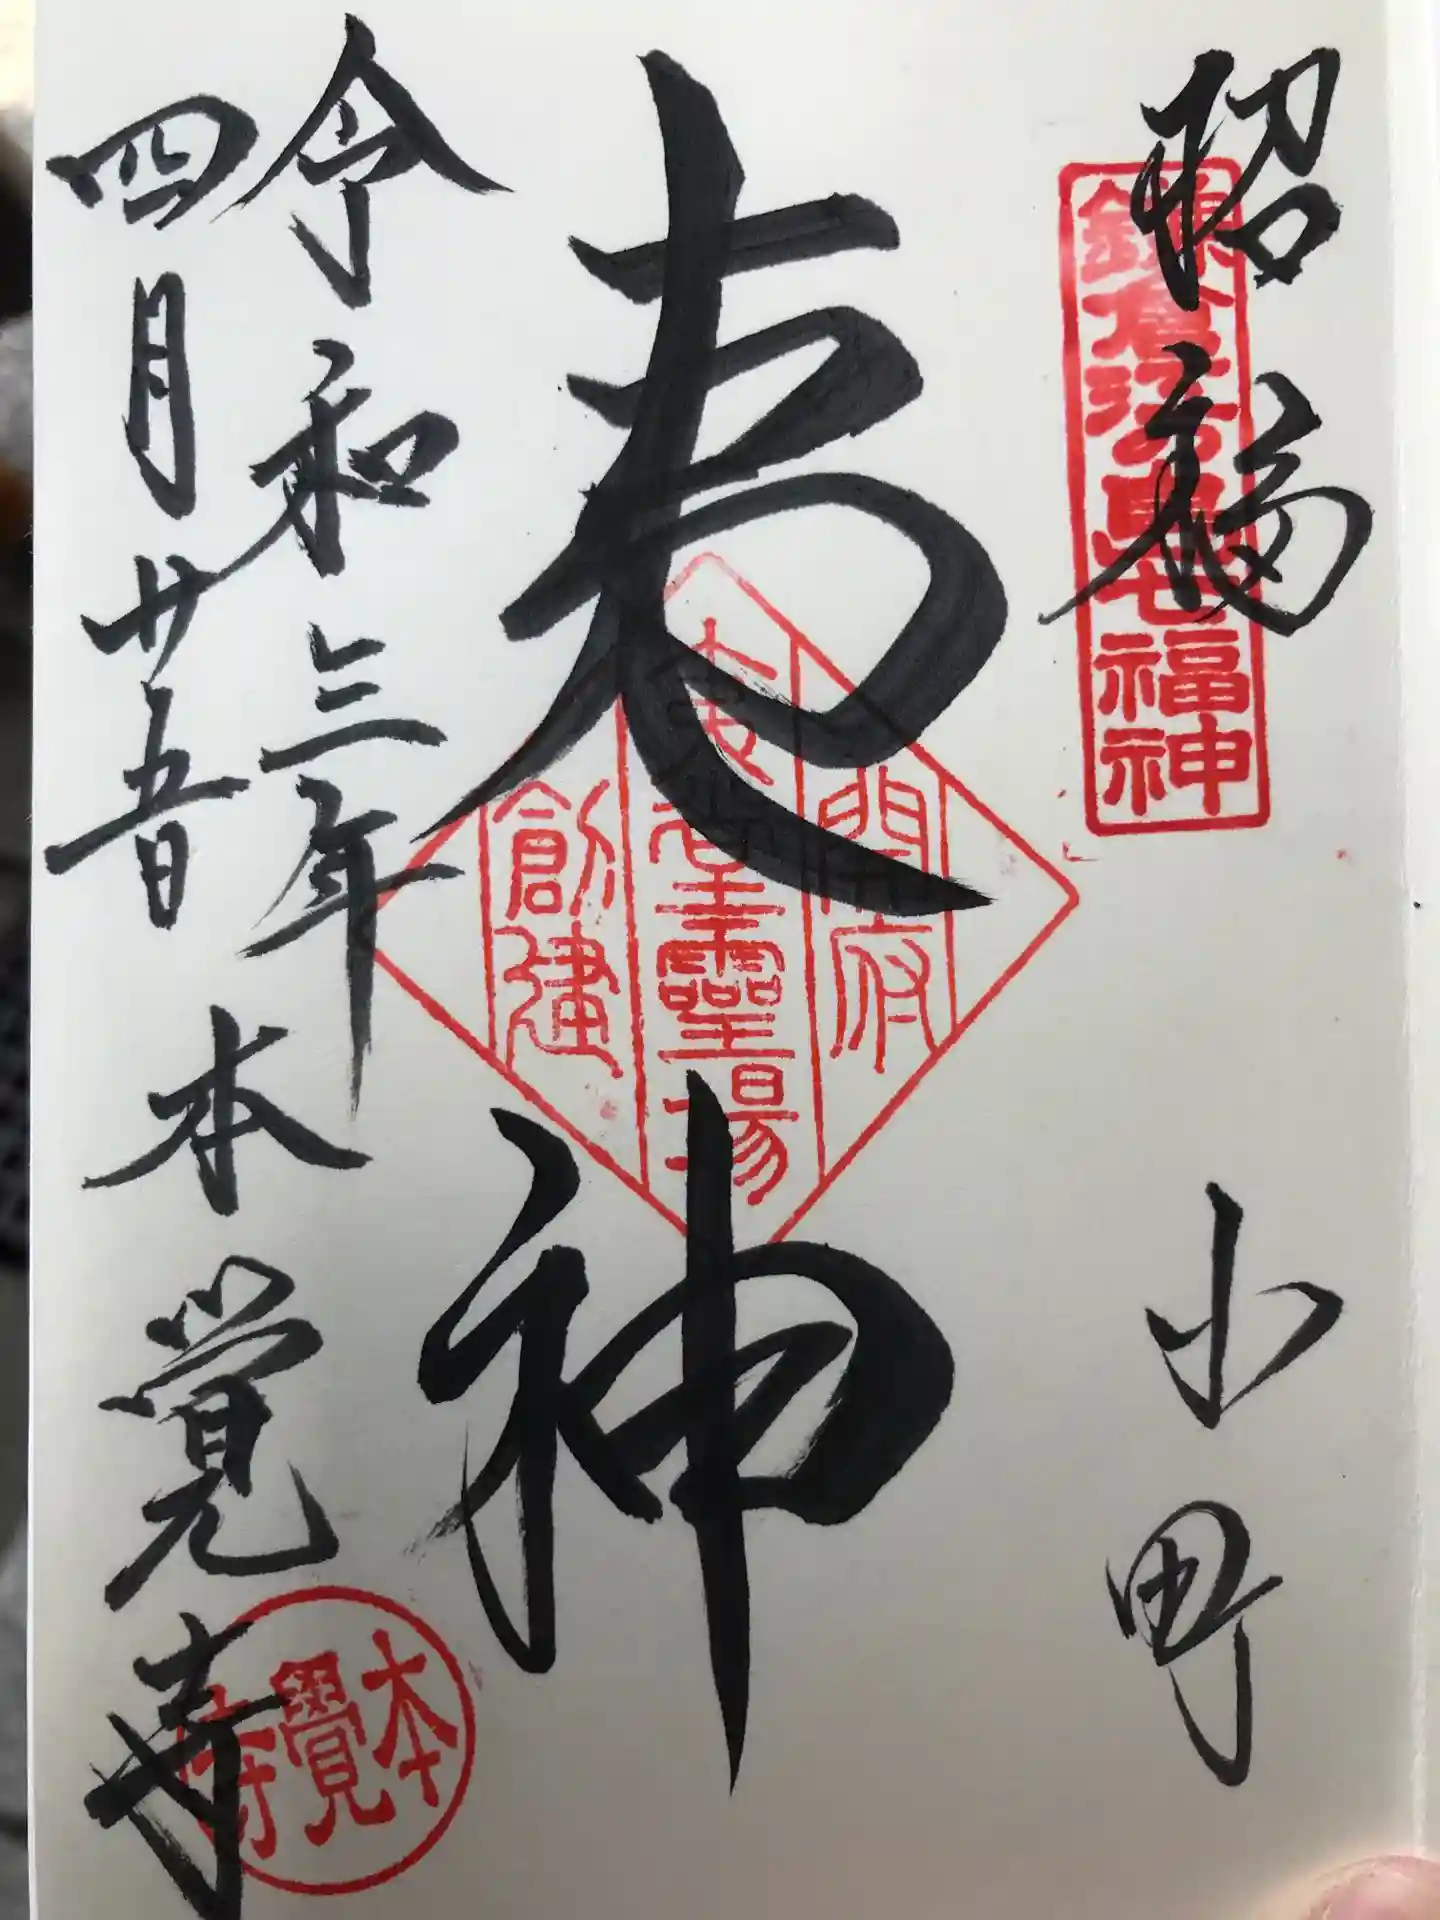 招福 小町
鎌倉江島七福神
夷神
開府
靈場
創建
令和三年
四月廿五日 本覚寺
本覺寺